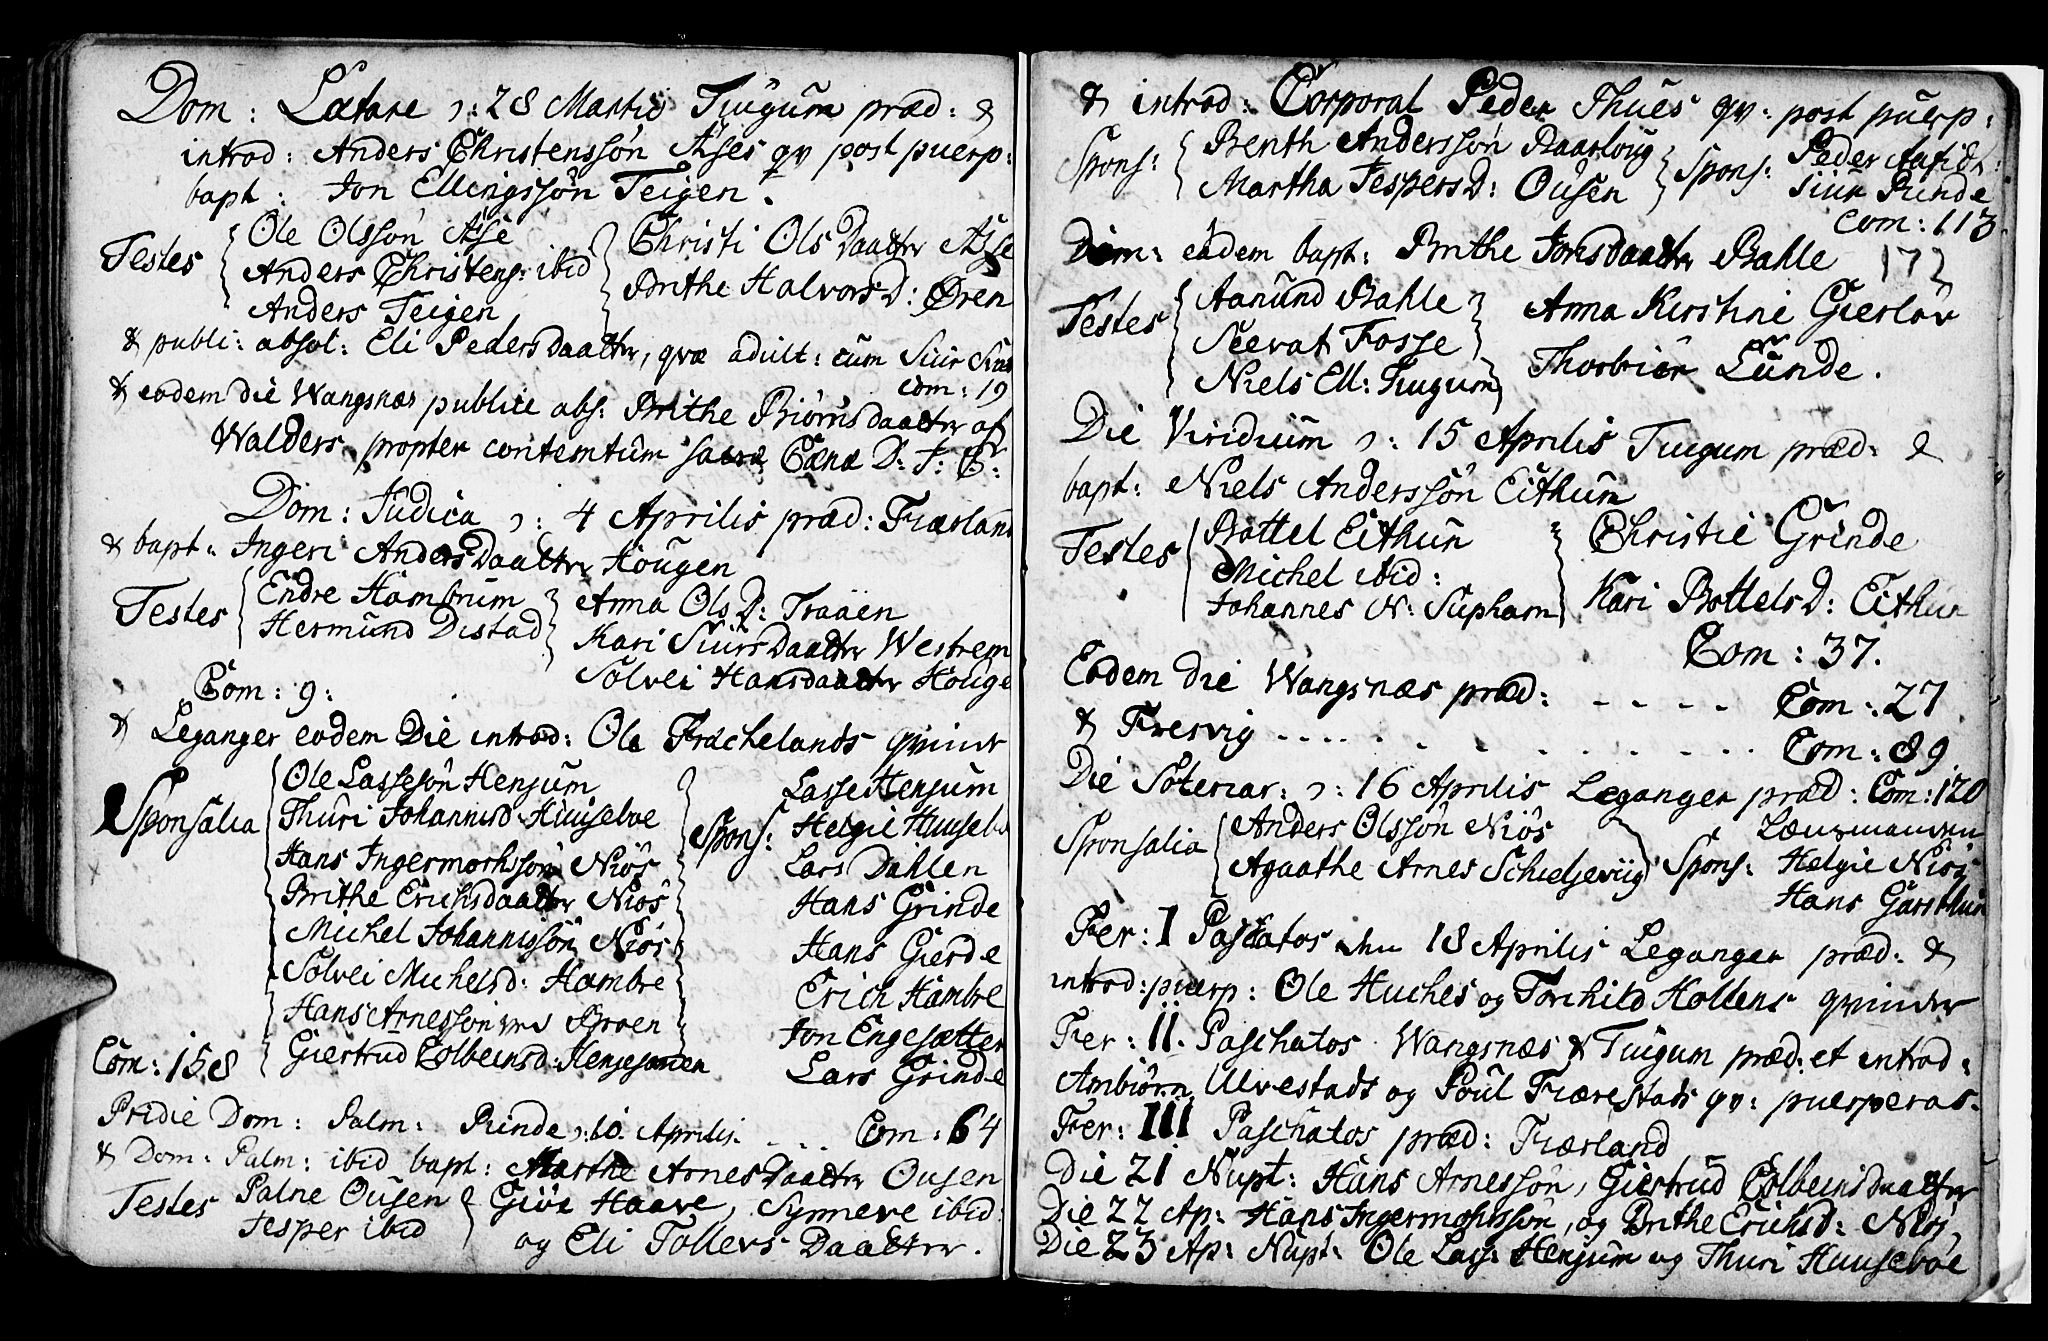 Dom: Lætare ɔ: 28 Martii Tiugum præd: &
introd: Anders Christenssøn Ases qv post puerp:
bapt: Jon Ellingssøn Teigen.
Testes { Ole Olssøn Ase
Anders Christens: ibid
Anders Teigen
Christi Ols Daatter Ase
Brithe Halvors D: Øren
& publi: absol: Eli Peders daatter, qvæ adult: cum Siur
Com: 19
& eodem die Wangsnæs publice abs: Brithe Biörns daatter af
Walders propter contemtum sacræ Cænæ D: J: C:
Dom: Judica ɔ: 4 Aprilis præd: Fiærland
& bapt: Ingeri Anders Daatter Hougen
Testes { Endre Hamrum
Hermund Distad
Anna Ols D: Traaen
Kari Siurs Daatter Westrem
Solvei Hansdaatter Houge
Com: 9:
& Leganger eodem Die introd: Ole Frachelands qvinde
Sponsalia { Ole Lassesøn Henjum
Thuri Johannisd Huusebøe
Hans Ingermorhssøn Niøs
Brithe Erichsdaatter Niøs
Michel Johannissøn Niøs
Solvei Michelsd: Hambre
Hans Arnessøn Broen
Giertrud Colbeinsd: Henjesanden
Spons: Lasse Henjum
Helgie Huuseb
Lars Dahlen
Hans Grinde
Hans Gierde
Erich Hambre
Jon Engesætter
Lars Grinde
Com: 158
Pridie Dom: Palm: Rinde ɔ: 10. Aprilis. . . . Com: 64
& Dom: Palm: ibid bapt: Marthe Arnes Daatter Ousen
Testes Palne Ousen
Jesper ibid
{ Giöe Haave, Synneve ibid
og Eli Tollevs Daatter.
& introd: Corporal Peder Thues qv: post puerp:
Spons: { Benth Anderssøn Baarloug
Martha Jespers D: Ousen
} Spons: Peder
Siur Rinde
Com: 113.
Dom: eadem bapt: Brithe Jonsdaatter Bahle
172
Testes { Aanund Bahle
Seevat Fosse
Niels Ell: Tiugum
Anna Kirstine Gierløv
Thorbiör Lunde.
Die Viridium ɔ: 15 Aprilis Tiugum præd: &
bapt: Niels Anderssøn Eithun
Testes { Bottel Eithun
Michel ibid:
Johannes N: Supham
Christie Grinde
Kari Bottels D: Eithun
Com: 37.
Eodem Die Wangsnæs præd: - - - - Com: 27
& Fresvig . . . . . . . . . . . . Com: 89
Die Soteriar: ɔ: 16 Aprilis Leganger præd: Com: 120
Sponsalia { Anders Olssøn Niøs
Agaathe Arnes Schielseviig
Spons: Lænsmanden
Helgie Niøs
Hans Garsthun
Fer: I Paschatos den 18 Aprilis Leganger præd: &
introd: puerp: Ole Huches og Torchild Holtens qvinder
Fer: II. Paschatos. Wangsnæs & Tiugum præd: et introd:
Ambiörn Ulvestads og Poul Fiærestads qv: puerperas.
Fer: III Paschatos præd: Fiærland
Die 21 Nupt: Hans Arnessøn, Giertrud Colbeins daatter
Die 22 Ap: Hans Ingermorhssøn, og Brithe Erichsd: Niøs,
Die 23 Ap: Nupt: Ole Las: Henjum og Thuri Huusebøe